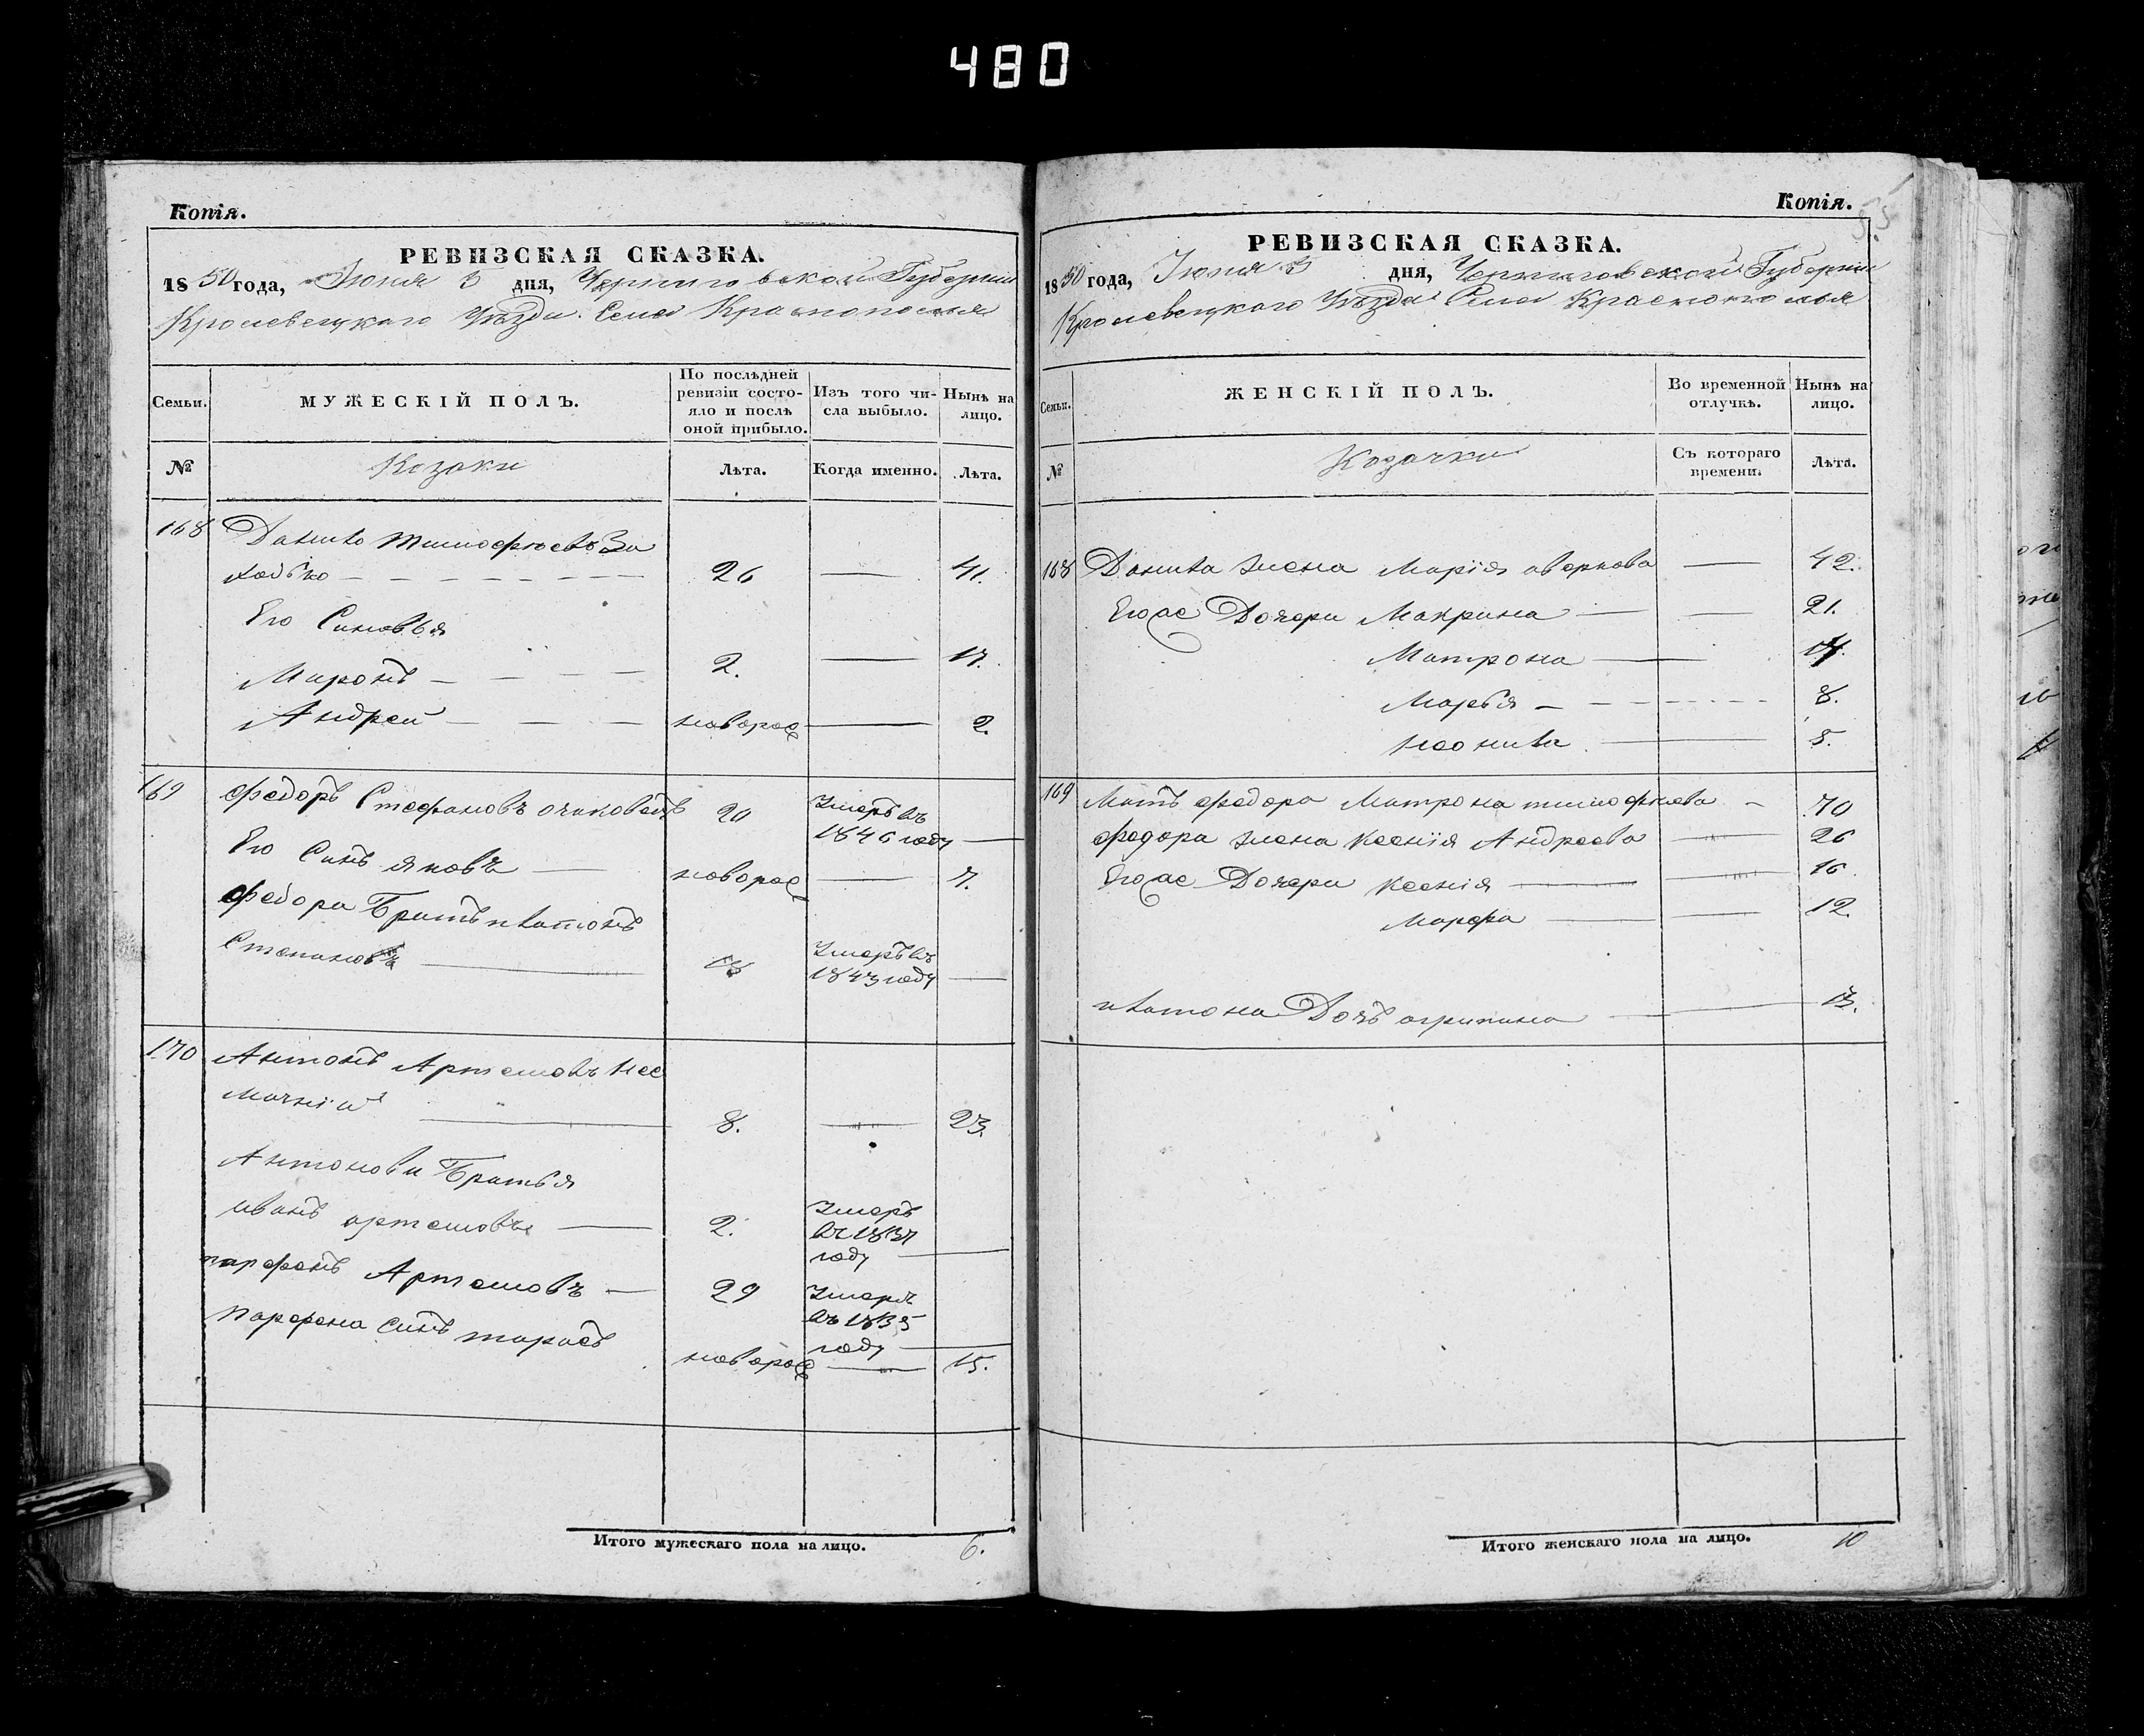 480
Копія.
РЕВИЗСКАЯ СКАЗКА.
1850 года, Июня 5 дня, Черниговской Губерніи
Кролевецкаго Уѣзда Села Краснополья
Семьи. МУЖЕСКІЙ ПОЛЪ. По послѣдней ревизіи состояло и послѣ оной прибыло. Изъ того числа выбыло. Нынѣ на лицо.
№ Козаки Лѣта. Когда именно. Лѣта.
168 Данило Тимофѣевъ За
26 — 41.
Его Синовья
Миронъ — 2. — 17.
Андрей — новорож — 2.
169 Федоръ Стефановъ 20 Умеръ въ
1846 году —
Его Синъ Яковъ — новорож — 7.
Федора Братъ Платонъ
Степановъ — Умеръ въ
1843 году —
170 Антонъ Артемовъ
8. — 23.
Антонови Братья
Иванъ Артемовъ — 2. Умеръ
въ 1837
году —
Парфенъ Артемовъ — 29 Умеръ
въ 1835
году —
Парфена Синъ Тарасъ новорож — 15.
Итого мужескаго пола на лицо. 6.
Копія.
РЕВИЗСКАЯ СКАЗКА.
1850 года, Июня 5 дня, Черниговской Губерніи
Кролевецкаго Уѣзда Села Краснополья
Семьи. ЖЕНСКІЙ ПОЛЪ. Во временной отлучкѣ. Нынѣ на лицо.
№ Козачки Съ котораго времени. Лѣта.
168 Данила жена Марія Аверкова — 42.
Егоже Дочери Макрина — 21.
Матрона — 14.
Марья — 8.
Неонила — 5.
169 Мать Федора Матрона Тимофѣева — 70
Федора жена Ксенія Андреева — 26
Егоже Дочери Ксенія — 16.
Марфа — 12.
Платона Дочь Агрипина — 13.
Итого женскаго пола на лицо. 10